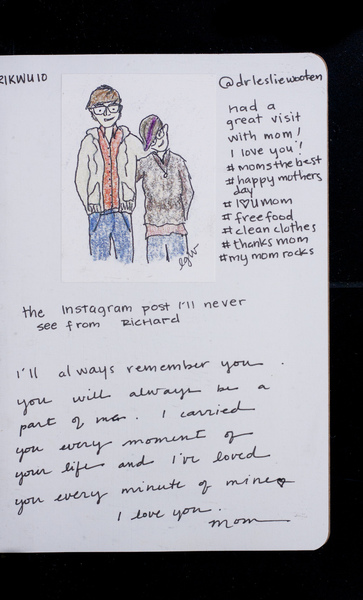 @drlesliewooten
Had a
great visit
with mom!
I love you!!
#momsthebest
#happy mothers
day
#I♡U mom
#free food
#clean clothes
#thanks mom
#my mom rocks
lgw
the Instagram post I'll never
see from RICHARD
I'll always remember you.
you will always be a
part of me. I carried
you every moment of
your life and I've loved
you every minute of mine♡
I love you.
mom